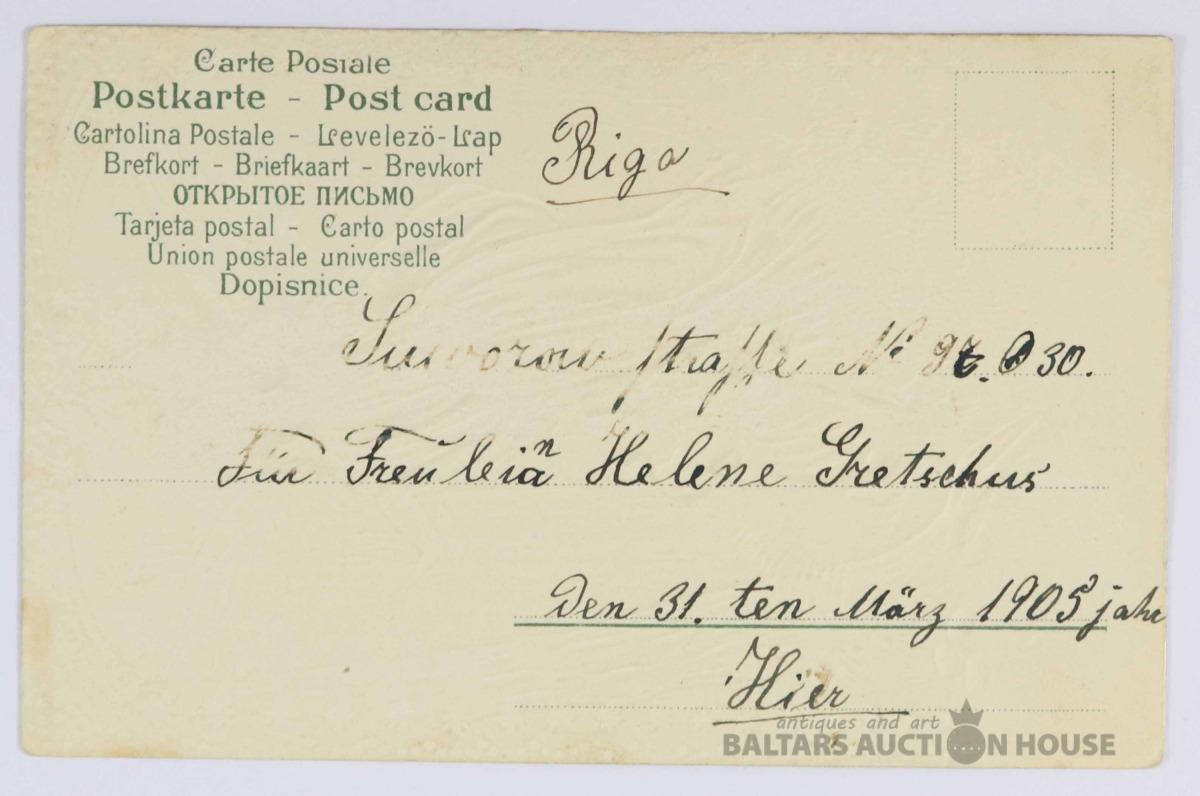 Carte Postale
Postkarte - Post card
Cartolina Postale - Levelezö-Lap
Brefkort - Briefkaart - Brevkort
ОТКРЫТОЕ ПИСЬМО
Tarjeta postal - Carto postal
Union postale universelle
Dopisnice.
Riga
Suworow strasse № 30.
Für Freulein Helene Gretschus
Den 31. ten März 1905 jahr
Hier
antiques and art
BALTARS AUCTION HOUSE